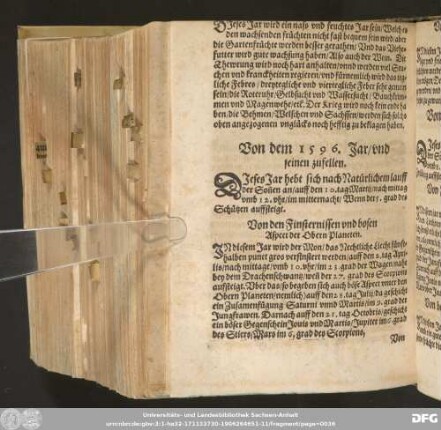 Dieses Jar wird ein naß vnd feuchtes Jar sein/Welches
den wachsenden früchten nicht fast bequem sein wird aber
die Gartenfrüchte werden besser gerathen/ Vnd das Viehe
futter wird gute wachsung haben/Also auch der Wein. Die
Thewrung wird noch hart anhalten/vnnd werden viel Seu
chen vnd kranckheiten regieren/vnd fürnemlich wird das teg
liche Febres/ dreytegliche vnd viertegliche Feber sehr gemein
sein/die Roteruhr/Gelbsucht vnd Wassersucht/Bauchkrim
men vnd Magenwehe/etc. Der Krieg wird noch kein ende ha
ben/die Behmen/Welschen vnd Sachssen/werden sich solch
oben angezogenen vnglücks noch hefftig zu beklagen haben.
Von dem 1596. Jar/vnd
seinen zufellen.
Dieses Jar hebt sich nach Natürlichem lauff
der Soñen an/auff den 10. tag Martij/nach mittag
vmb 12. vhr/in mitternacht. Wenn der 5. grad des
Schützen auffsteigt.
Von den Finsternissen vnd bösen
Aspect der Obern Planeten.
IN diesem Jar wird der Mon/das Nechtliche Liecht fünffte
halben punct gros verfinstert werden/auff den 2. tag Apri
lis/nach mittage/vmb 10. vhr/im 23. grad der Wagen/nahe
bey dem Drachenschwantz/weil der 27. grad des Scorpions
auffsteigt. Vber das so begeben sich auch böse Aspect vnter den
Obern Planeten/nemlich/auff den 29. tag Julij/da geschicht
ein Zusamenfügung Saturni vnnd Martis/im 3. grad der
Jungfrawen. Darnach auff den 21. tag Octobris/geschicht
ein böser Gegenschein Jouis vnd Martis/Jupiter im 6. grad
des Stiers/Mars im 6. grad des Scorpions.
Von
Universitäts- und Landesbibliothek Sachsen-Anhalt
urn:nbn:de:gbv:3:1-ha32-171132730-1906264651-11/fragment/page=0036
DFG